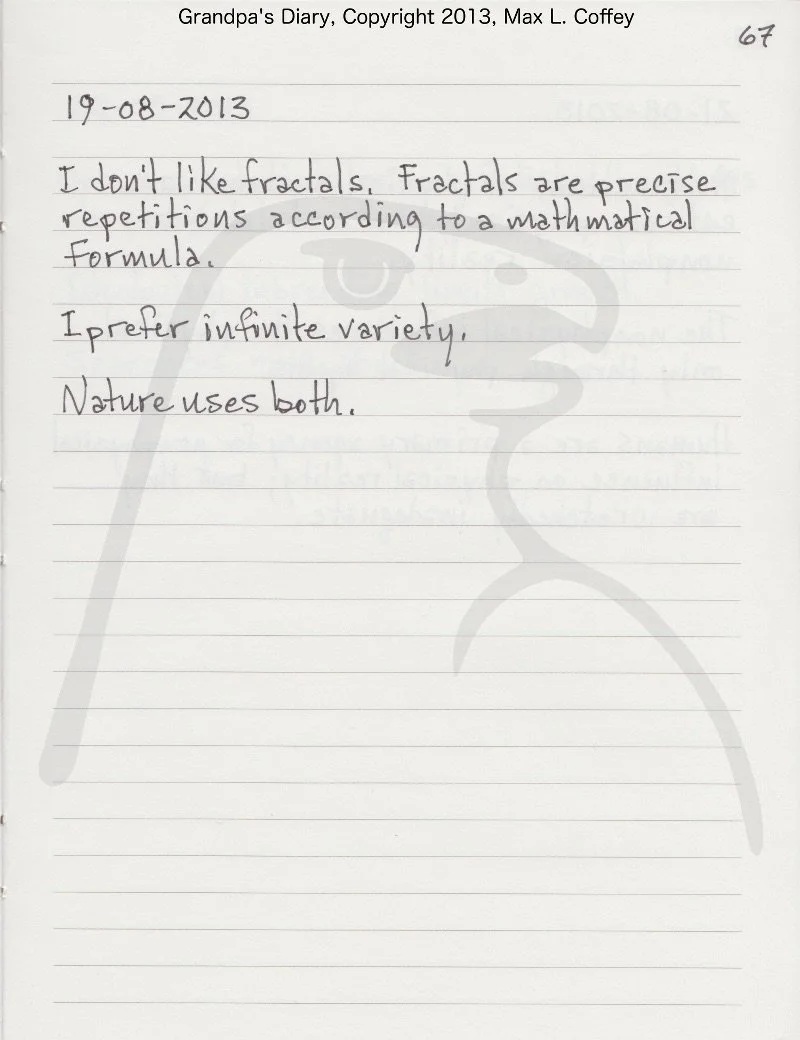 Grandpa's Diary, Copyright 2013, Max L. Coffey
67
19-08-2013
I don't like fractals. Fractals are precise
repetitions according to a mathmatical
formula.
I prefer infinite variety.
Nature uses both.